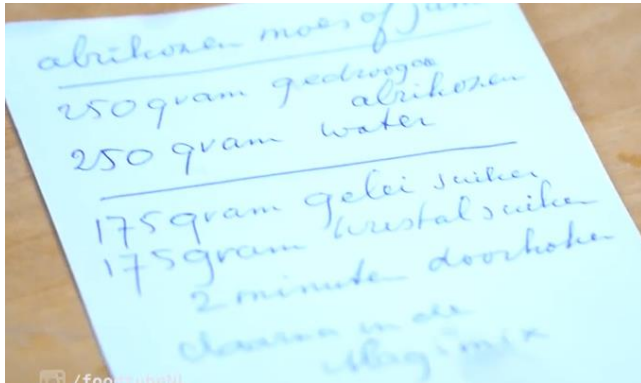 abrikozen moes of jam
250 gram gedroogde
abrikozen
250 gram water
175 gram gelei suiker
175 gram kristal suiker
2 minuten doorkoken
daarna in de
Magimix